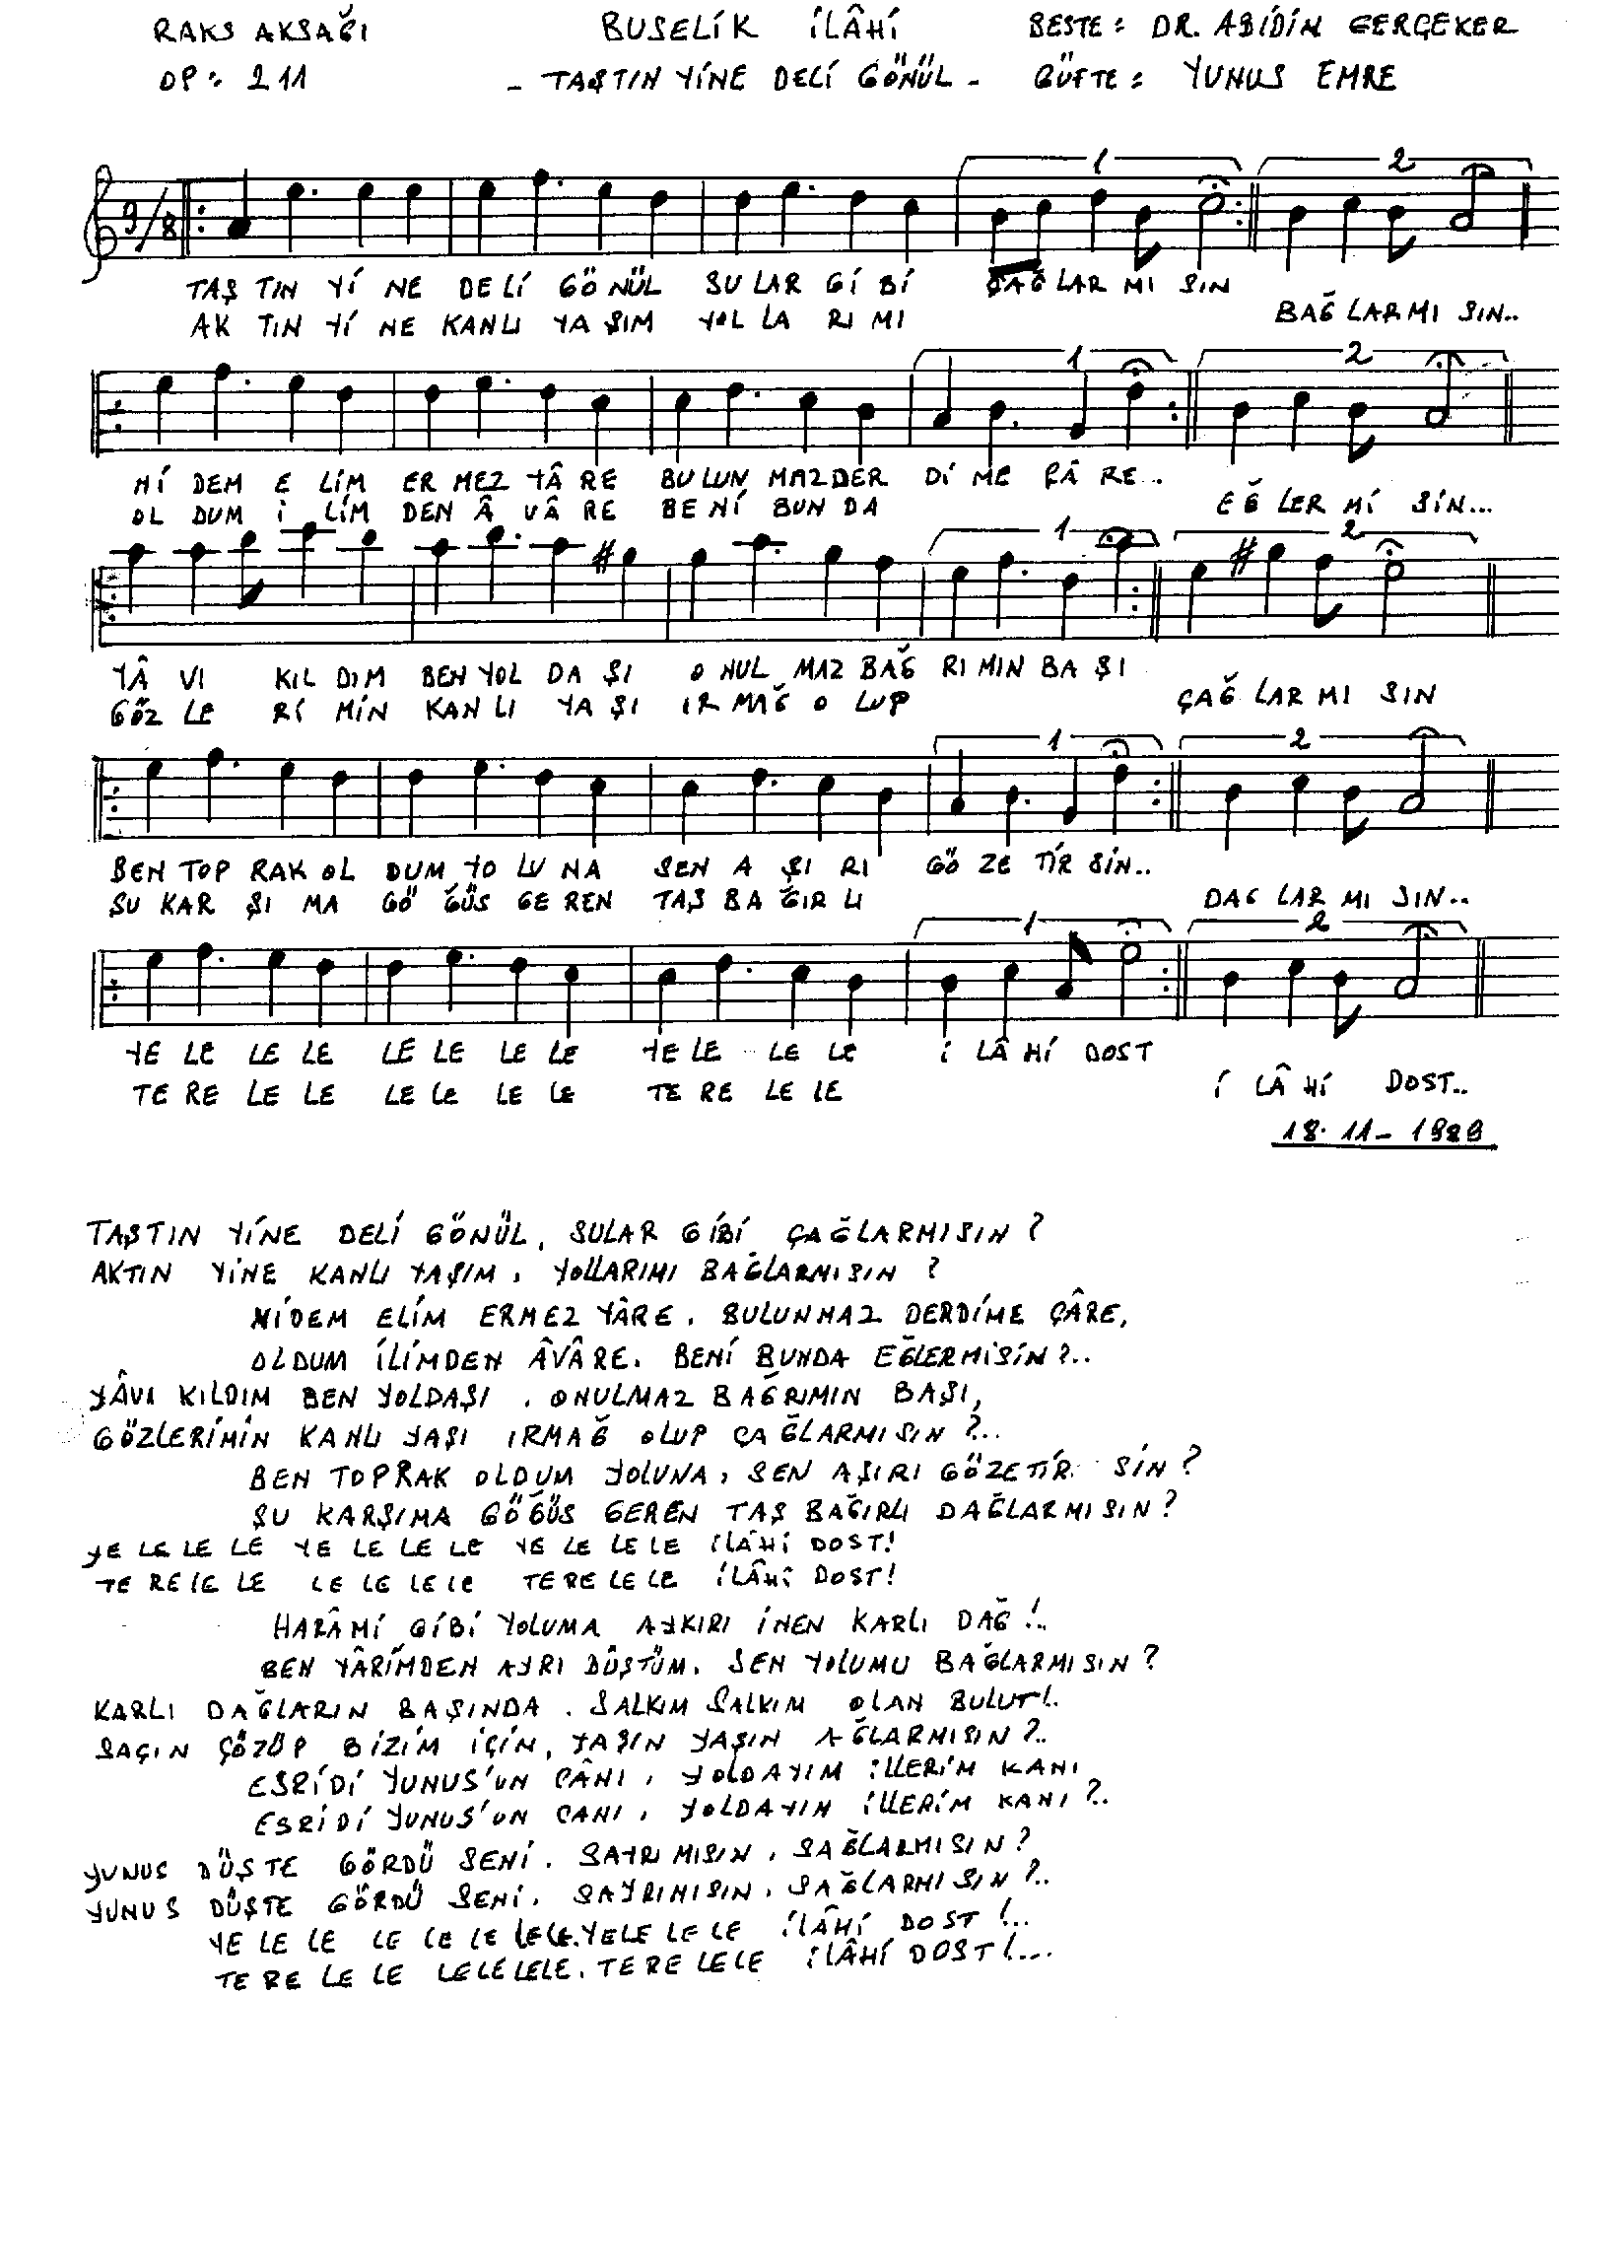 RAKS AKSAĞI BUSELİK İLÂHİ BESTE = DR. ABİDİN GERÇEKER
OP = 211 - TAŞTIN YİNE DELİ GÖNÜL - GÜFTE = YUNUS EMRE
1 2
9/8
TAŞ TIN Yİ NE DE Lİ GÖ NÜL SU LAR Gİ Bİ ÇAĞ LAR MI SIN
AK TIN Yİ NE KAN LI YA ŞIM YOL LA RI MI BAĞ LAR MI SIN..
1 2
Nİ DEM E LİM ER MEZ YÂ RE BU LUN MAZ DER Dİ ME ÇÂ RE..
OL DUM İ LİM DEN Â VÂ RE BE Nİ BUN DA EĞ LER Mİ SİN...
1 2
YÂ VI KIL DIM BEN YOL DA ŞI O NUL MAZ BAĞ RI MIN BA ŞI
GÖZ LE Rİ MİN KAN LI YA ŞI IR MAĞ O LUP ÇAĞ LAR MI SIN
1 2
BEN TOP RAK OL DUM YO LU NA SEN A ŞI RI GÖ ZE TİR SİN..
ŞU KAR ŞI MA GÖ ĞÜS GE REN TAŞ BA ĞIR LI DAĞ LAR MI SIN..
1 2
YE LE LE LE LE LE LE LE YE LE LE LE İ LÂ Hİ DOST
TE RE LE LE LE LE LE LE TE RE LE LE İ LÂ Hİ DOST..
18.11-1989
TAŞTIN YİNE DELİ GÖNÜL, SULAR GİBİ ÇAĞLARMISIN ?
AKTIN YİNE KANLI YAŞIM, YOLLARIMI BAĞLARMISIN ?
NİDEM ELİM ERMEZ YÂRE, BULUNMAZ DERDİME ÇÂRE,
OLDUM İLİMDEN ÂVÂRE, BENİ BUNDA EĞLERMİSİN ?..
YÂVI KILDIM BEN YOLDAŞI, ONULMAZ BAĞRIMIN BAŞI,
GÖZLERİMİN KANLI YAŞI IRMAĞ OLUP ÇAĞLARMISIN ?...
BEN TOPRAK OLDUM YOLUNA, SEN AŞIRI GÖZETİR SİN ?
ŞU KARŞIMA GÖĞÜS GEREN TAŞ BAĞIRLI DAĞLARMISIN ?
YE LE LE LE YE LE LE LE YE LE LE LE İLÂHİ DOST!
TE RE LE LE LE LE LE LE TE RE LE LE İLÂHİ DOST!
HARÂMİ GİBİ YOLUMA AYKIRI İNEN KARLI DAĞ !..
BEN YÂRİMDEN AYRI DÜŞTÜM, SEN YOLUMU BAĞLARMISIN ?
KARLI DAĞLARIN BAŞINDA, SALKIM SALKIM OLAN BULUT!..
SAÇIN ÇÖZÜP BİZİM İÇİN, YAŞIN YAŞIN AĞLARMISIN ?..
ESRİDİ YUNUS'UN CÂNI, YOLDAYIM İLLERİM KANI
ESRİDİ YUNUS'UN CANI, YOLDAYIN İLLERİM KANI ?..
YUNUS DÜŞTE GÖRDÜ SENİ, SAYRIMISIN, SAĞLARMISIN ?
YUNUS DÜŞTE GÖRDÜ SENİ, SAYRIMISIN, SAĞLARMISIN ?..
YE LE LE LE LE LE LE LE, YE LE LE LE İLÂHİ DOST !...
TE RE LE LE LE LE LE LE, TE RE LE LE İLÂHİ DOST !...